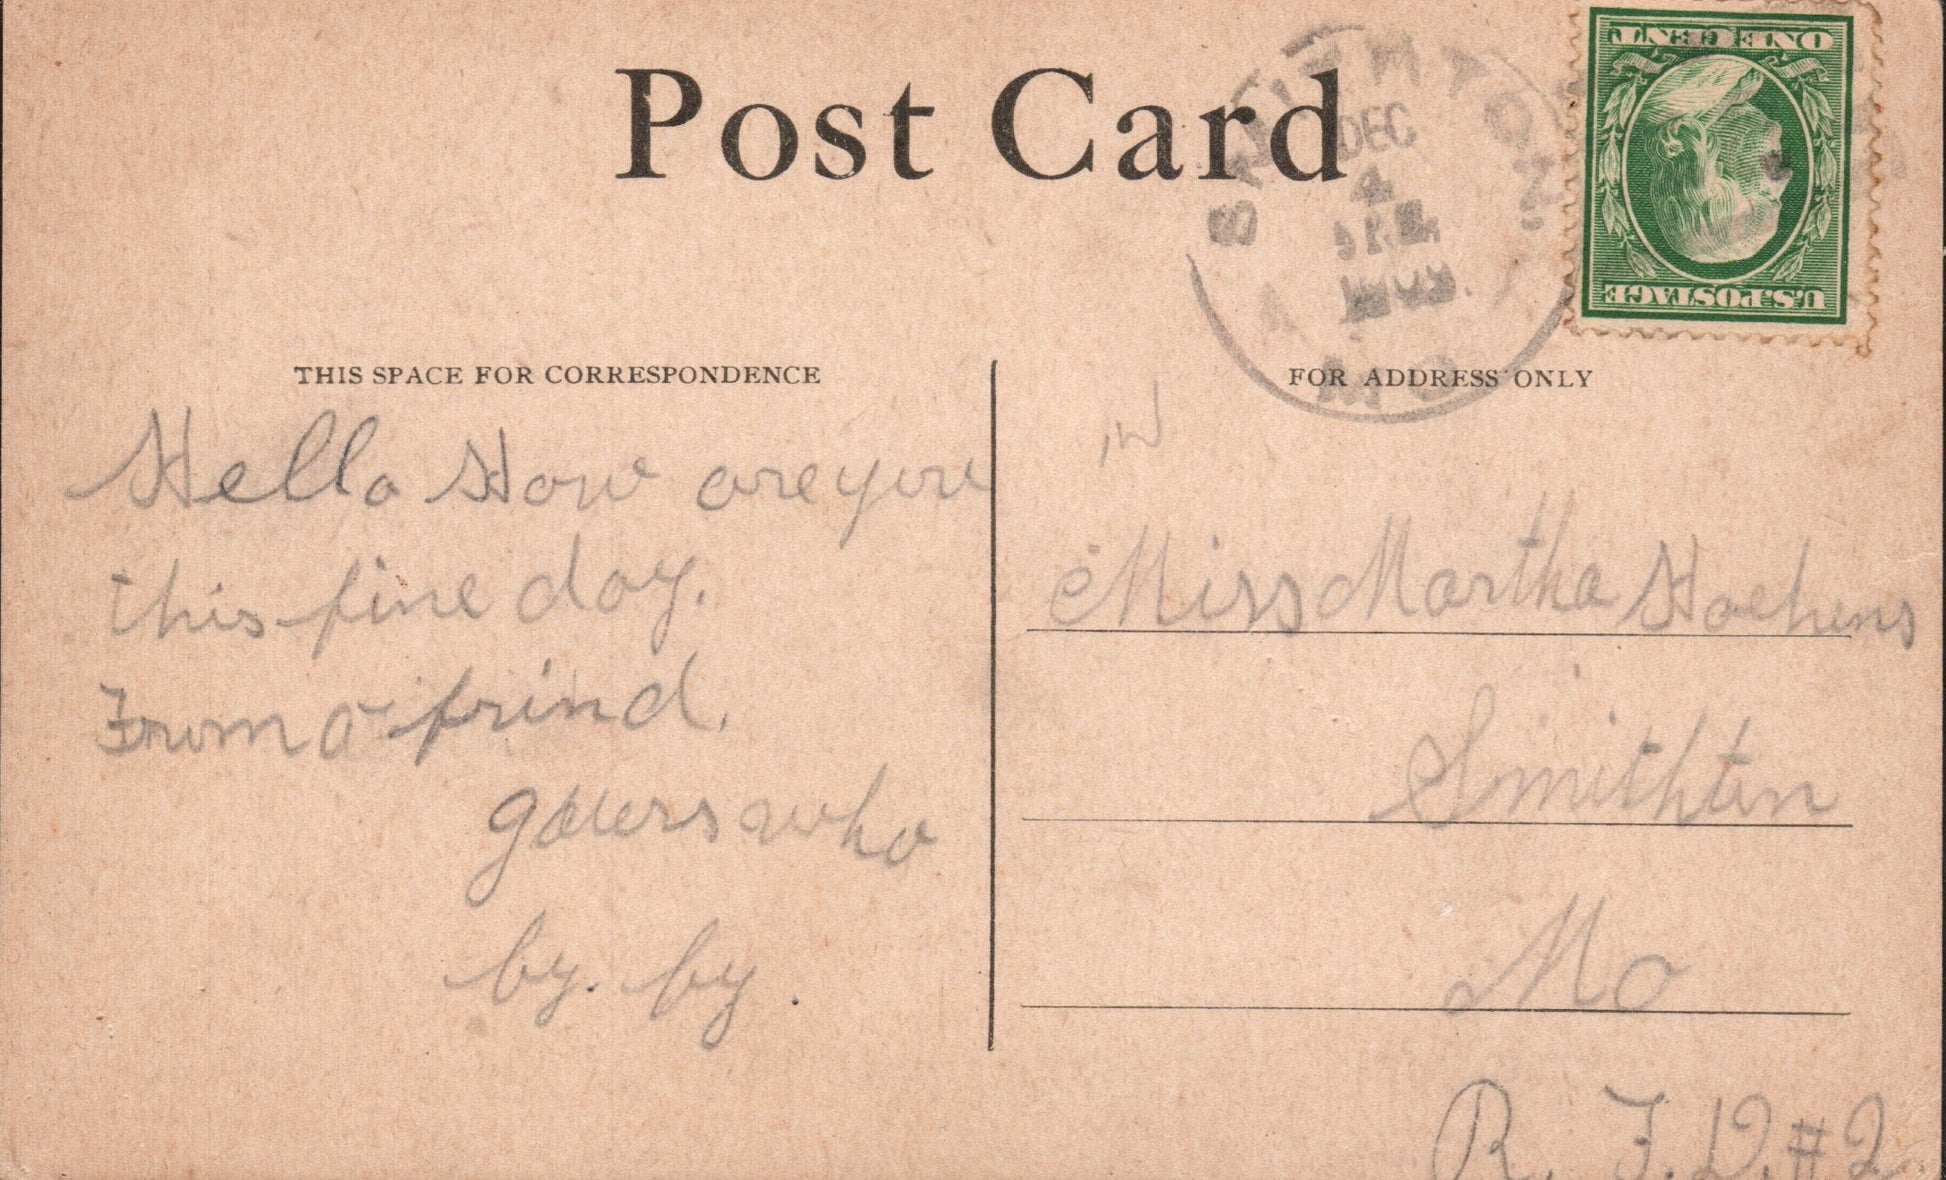 Post Card
SMITHTON
DEC
4
MO.
ONE CENT
U.S. POSTAGE
THIS SPACE FOR CORRESPONDENCE
FOR ADDRESS ONLY
Hello How are you
this fine day.
From a frind.
who
by. by.
Miss Martha Hoehens
Smithton
Mo
R. F. D. #2